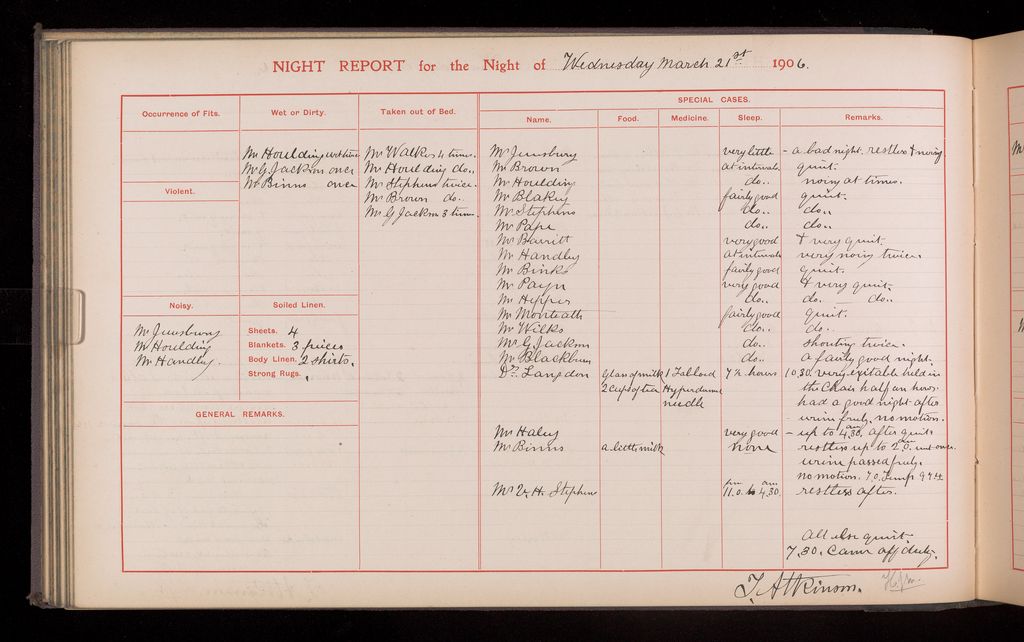 NIGHT REPORT for the Night of Wednesday March 21st 1906.
SPECIAL CASES.
Occurrence of Fits.
Wet or Dirty.
Taken out of Bed.
Name.
Food.
Medicine.
Sleep.
Remarks.
Mr Houlding wet twice
Mr G Jackson once
Mr Binns once
Mr Walker 4 times.
Mr Houlding do..
Mr Stephens twice.
Mr Brown do.
Mr G Jackson 3 times.
Violent.
Noisy.
Mr Jewsbury
Mr Houlding
Mr Handley.
Soiled Linen.
Sheets. 4
Blankets. 3 pieces
Body Linen. 2 shirts.
Strong Rugs.
GENERAL REMARKS.
Mr Jewsbury very little - a bad night. restless & noisy
Mr Brown at intervals quiet.
Mr Houlding do.. noisy at times.
Mr Blakey fairly good quiet.
Mr Stephens do.. do..
Mr Pape do.. do..
Mr Barritt very good & very quiet.
Mr Handley at intervals very noisy twice.
Mr Binks fairly good quiet.
Mr Payn very good & very quiet.
Mr Hepper do.. do. — do..
Mr Monteath fairly good quiet.
Mr Wilks do.. do.
Mr G Jackson do.. shouting twice.
Mr Blackburn do.. a fairly good night.
Dr. Langdon Glass of milk 1 Tabloid 7½ hours 10.30. very excitable held in
2 cups of tea needle the Chair half an hour.
had a good night after
- urine freely. no motion.
Mr Haley very good - up to 4.30. am after quiet
Mr Binns a little milk none restless up to 2.0. am wet once.
urine passed freely.
no motion. 7.0. Temp 97.4
Mr V. H. Stephens 11.0. pm to 4.30. am restless after.
All else quiet
7.30. Came off duty.
T. Atkinson.